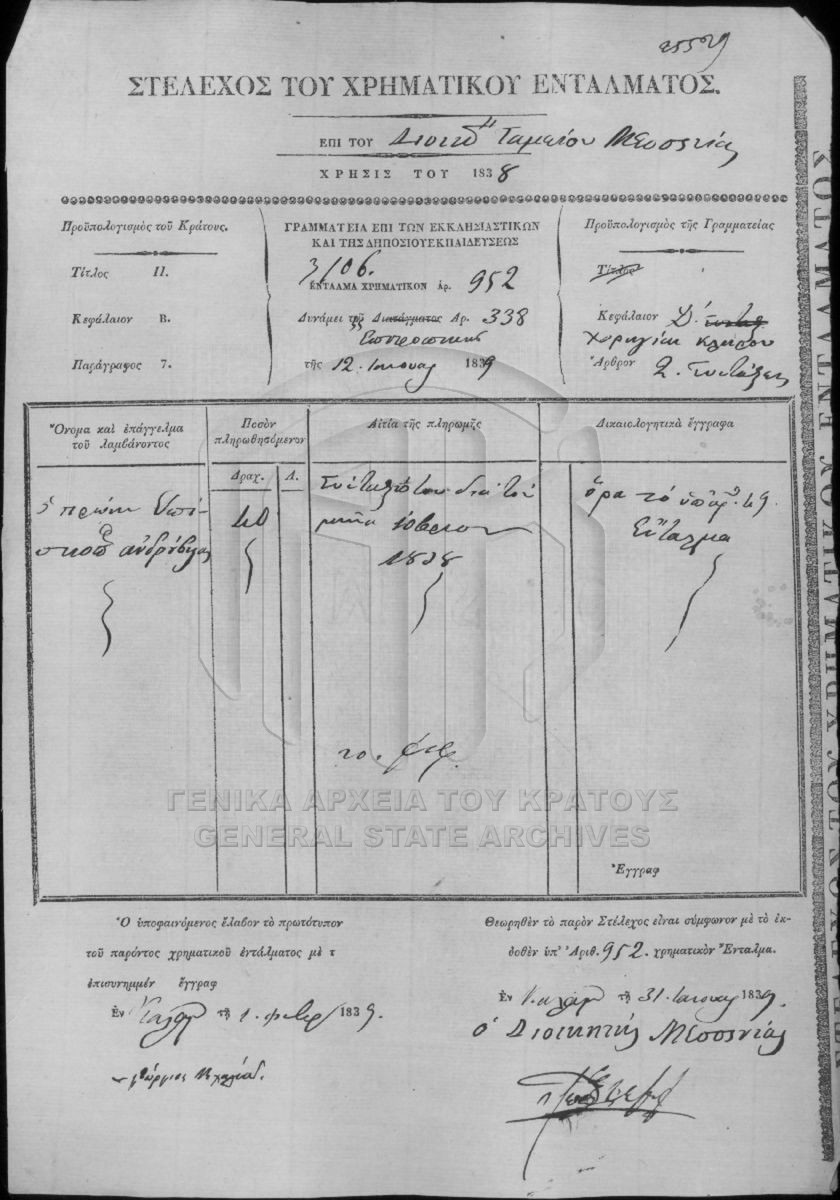 25529
ΣΤΕΛΕΧΟΣ ΤΟΥ ΧΡΗΜΑΤΙΚΟΥ ΕΝΤΑΛΜΑΤΟΣ.
ΕΠΙ ΤΟΥ Διοικη Ταμείου Μεσσηνίας
ΧΡΗΣΙΣ ΤΟΥ 1838
Προϋπολογισμὸς τοῦ Κράτους.
Τίτλος II.
Κεφάλαιον Β.
Παράγραφος 7.
ΓΡΑΜΜΑΤΕΙΑ ΕΠΙ ΤΩΝ ΕΚΚΛΗΣΙΑΣΤΙΚΩΝ
ΚΑΙ ΤΗΣ ΔΗΜΟΣΙΟΥ ΕΚΠΑΙΔΕΥΣΕΩΣ
3106.
ΕΝΤΑΛΜΑ ΧΡΗΜΑΤΙΚΟΝ ἀρ. 952
Δυνάμει τοῦ Διατάγματος Ἀρ. 338
τῆς 12 Ιανουαρ 1839
Προϋπολογισμὸς τῆς Γραμματείας
Τίτλος
Κεφάλαιον Δ΄.
χορηγίαι κλήρου
Ἄρθρον 2. Συντάξεις
Ὄνομα καὶ ἐπάγγελμα
τοῦ λαμβάνοντος
Ποσὸν
πληρωθησόμενον
Δραχ. Λ.
Αἰτία τῆς πληρωμῆς
Δικαιολογητικὰ ἔγγραφα
ὁ πρώην Ἐπί-
σκοπ Ἀνδρούβησ
40
Σύνταξίς του διὰ τὸν
μῆνα
1838
ὅρα τὸ ὑπ' ἀρ. 49.
Ἔνταλμα
Ἔγγραφ
Ὁ ὑποφαινόμενος ἔλαβον τὸ πρωτότυπον
τοῦ παρόντος χρηματικοῦ ἐντάλματος μὲ τ
ἐπισυνημμέν ἔγγραφ
Ἐν Καλαμ τῇ 1. φεβρ 1839.
Γεώργιος
Θεωρηθὲν τὸ παρὸν Στέλεχος εἶναι σύμφωνον μὲ τὸ ἐκ-
δοθὲν ὑπ' Ἀριθ. 952. χρηματικὸν Ἔνταλμα.
Ἐν Καλάμ τῇ 31 Ιανουαρ 1839.
ὁ Διοικητὴς Μεσσηνίας
ΣΤΕΛΕΧΟΣ ΤΟΥ ΧΡΗΜΑΤΙΚΟΥ ΕΝΤΑΛΜΑΤΟΣ
ΓΕΝΙΚΑ ΑΡΧΕΙΑ ΤΟΥ ΚΡΑΤΟΥΣ
GENERAL STATE ARCHIVES